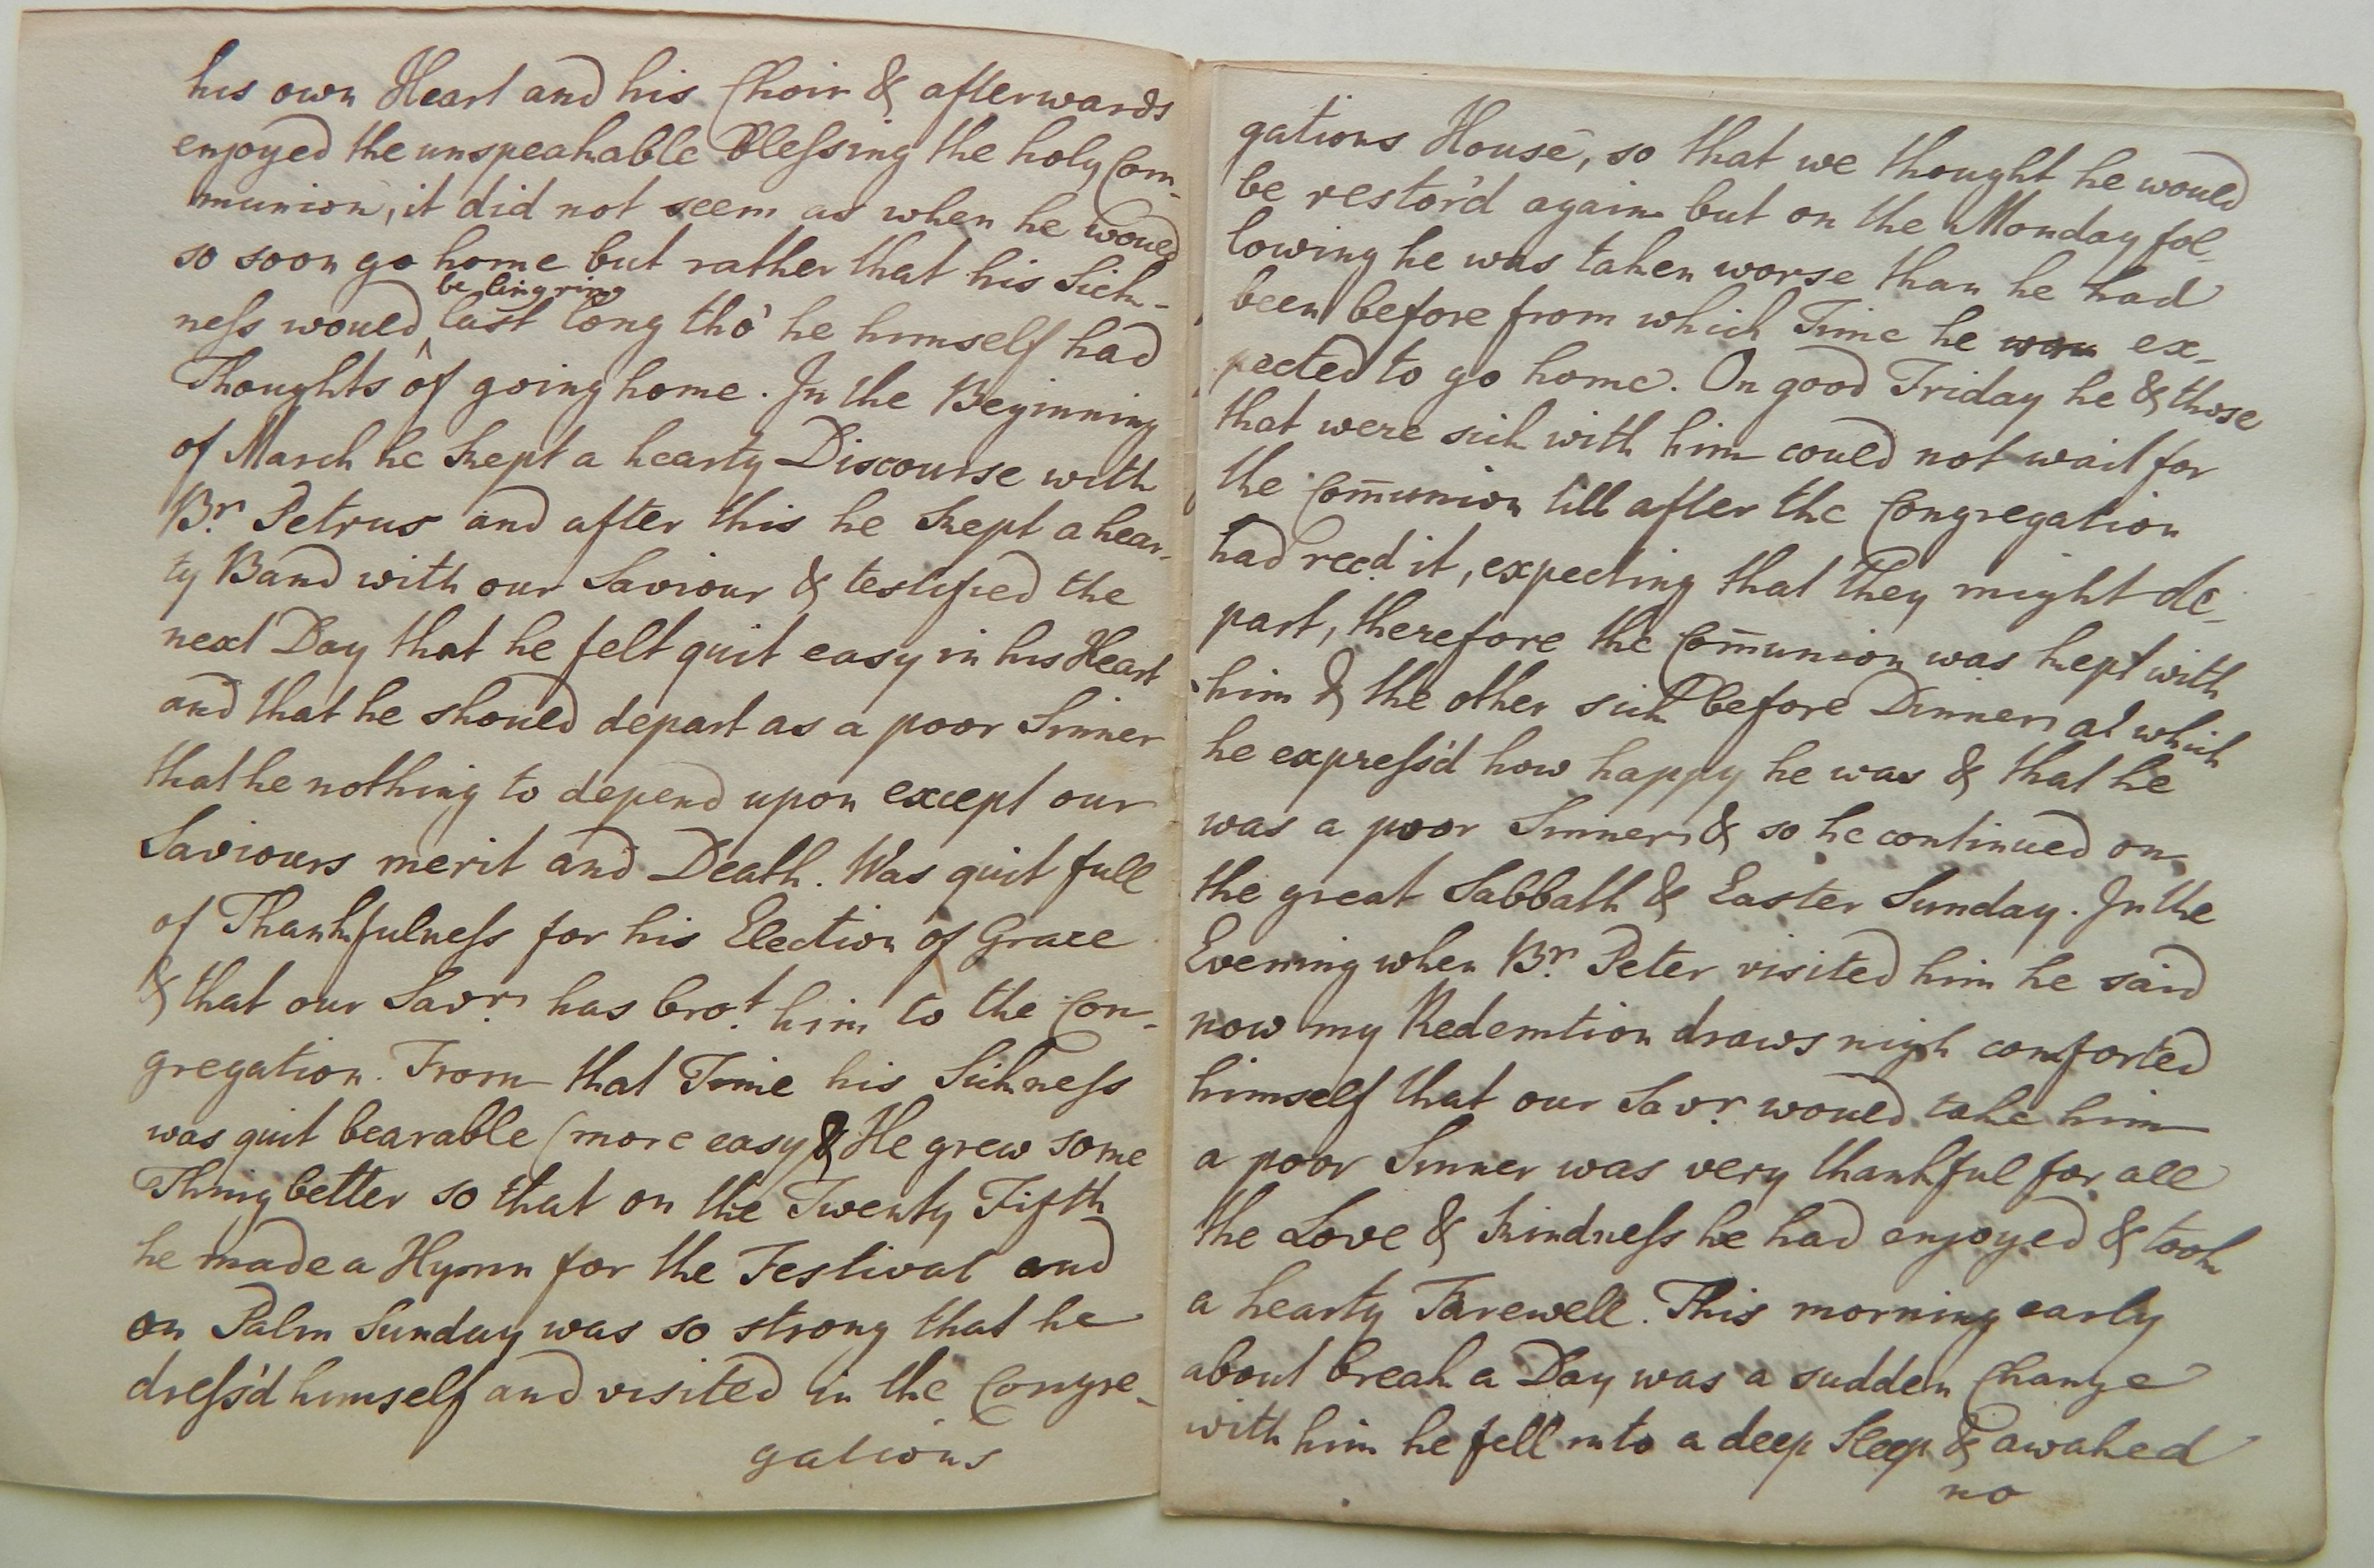 his own Heart and his Choir & afterwards
enjoyed the unspeakable Blessing the holy Com-
munion, it did not seem as when he would
so soon go home but rather that his Sick-
be lingring
ness would last long tho' he himself had
Thoughts of going home. In the Beginning
of March he kept a hearty Discourse with
Br. Petrus and after this he kept a hear-
ty Band with our Saviour & testified the
next Day that he felt quit easy in his Heart
and that he should depart as a poor Sinner
that he nothing to depend upon except our
Saviours merit and Death. Was quit full
of Thankfulness for his Election of Grace
& that our Savr. has brot. him to the Con-
gregation. From that Time his Sickness
was quit bearable (more easy & He grew some
Thing better so that on the Twenty Fifth
he made a Hymn for the Festival and
on Palm Sunday was so strong that he
dress'd himself and visited in the Congre-
gations
gations House, so that we thought he would
be restor'd again but on the Monday fol-
lowing he was taken worse than he had
been before from which Time he ex-
pected to go home. On good Friday he & those
that were sick with him could not wait for
the Com̄union till after the Congregation
had recd. it, expecting that they might de-
part, therefore the Com̄union was kept with
him & the other sick before Dinner at which
he express'd how happy he was & that he
was a poor Sinner & so he continued on
the great Sabbath & Easter Sunday. In the
Evening when Br. Peter visited him he said
now my Redemtion draws nigh comforted
himself that our Savr. would take him
a poor Sinner was very thankful for all
the Love & Kindness he had enjoyed & took
a hearty Farewell. This morning early
about break a Day was a sudden Change
with him he fell into a deep Sleep & awaked
no